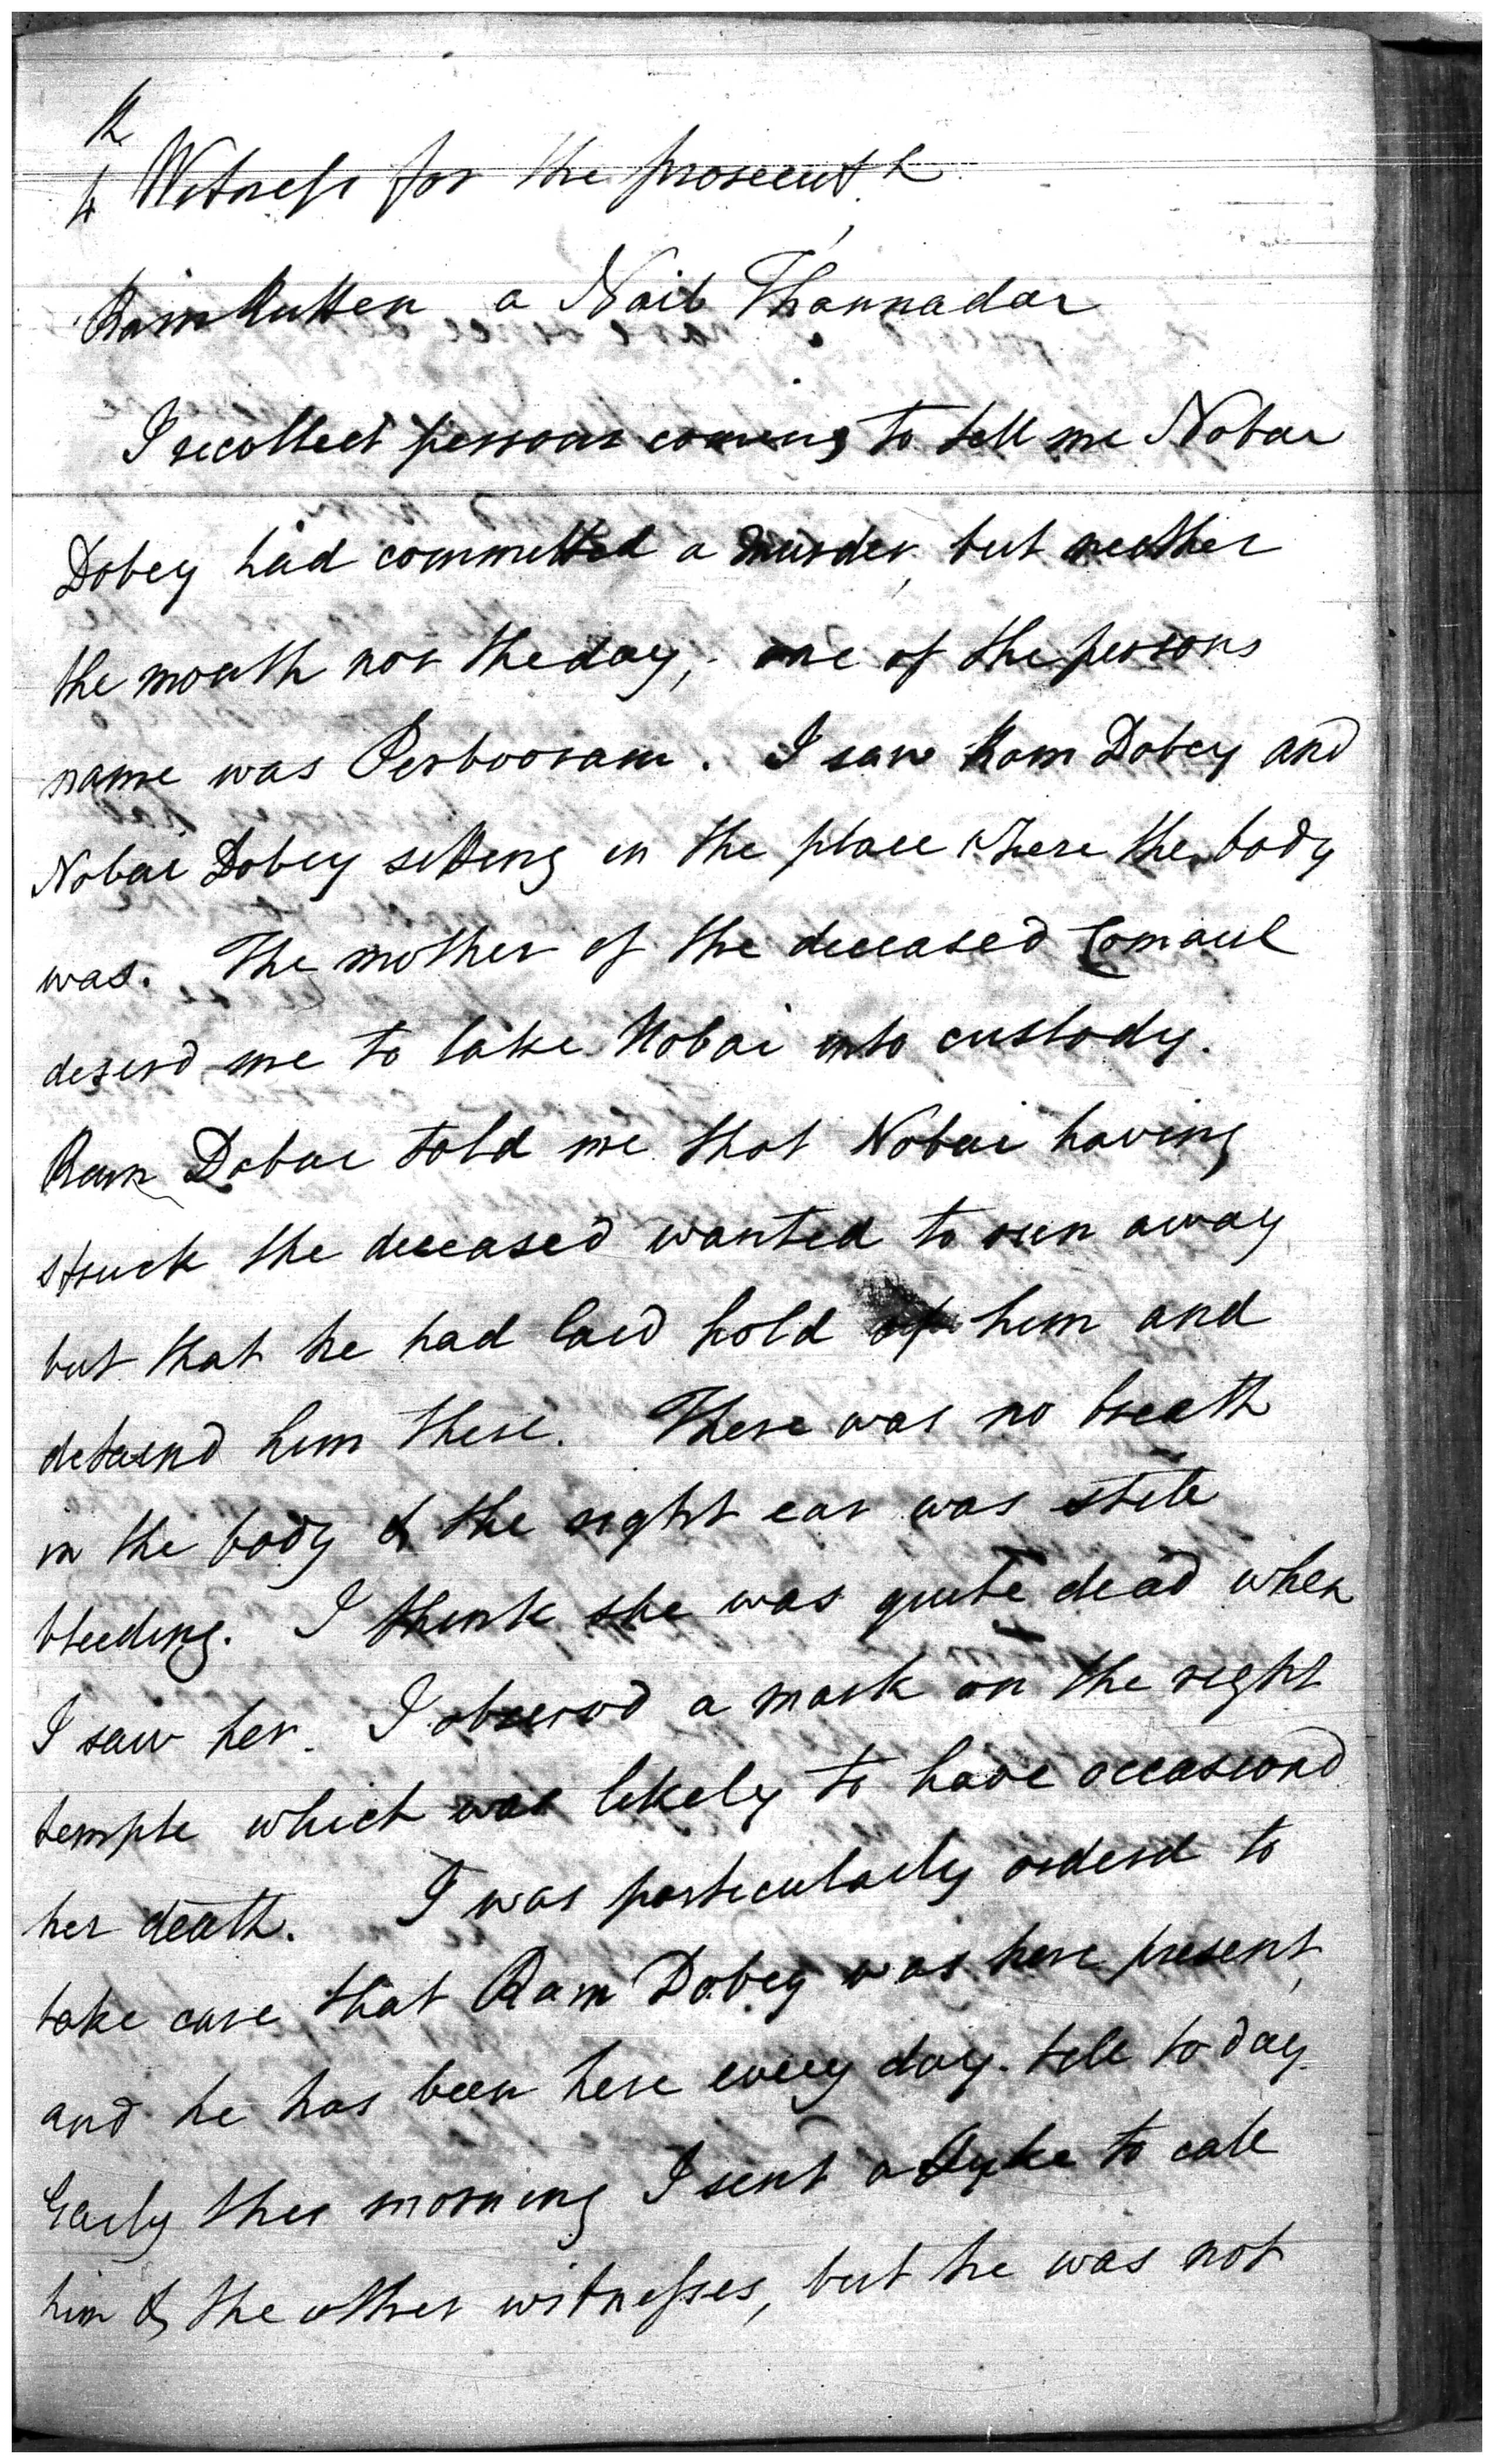 4th Witness for the prosecutn.
Ram Rutten a Naib Thannadar
I recollect persons coming to tell me Nobai
Dobey had committed a murder, but neither
the month nor the day, one of the persons
name was Perbooram. I saw Ram Dobey and
Nobai Dobey sitting in the place where the body
was. The mother of the deceased Comaul
desird me to take Nobai into custody.
Ram Dobai told me that Nobai having
struck the deceased wanted to run away
but that he had laid hold of him and
detaind him there. There was no breath
in the body & the right ear was still
bleeding. I think she was quite dead when
I saw her. I observd a mark on the right
temple which was likely to have occasiond
her death. I was particularly orderd to
take care that Ram Dobey was here present,
and he has been here every day till to day.
Early this morning I sent a to call
him & the other witnesses, but he was not